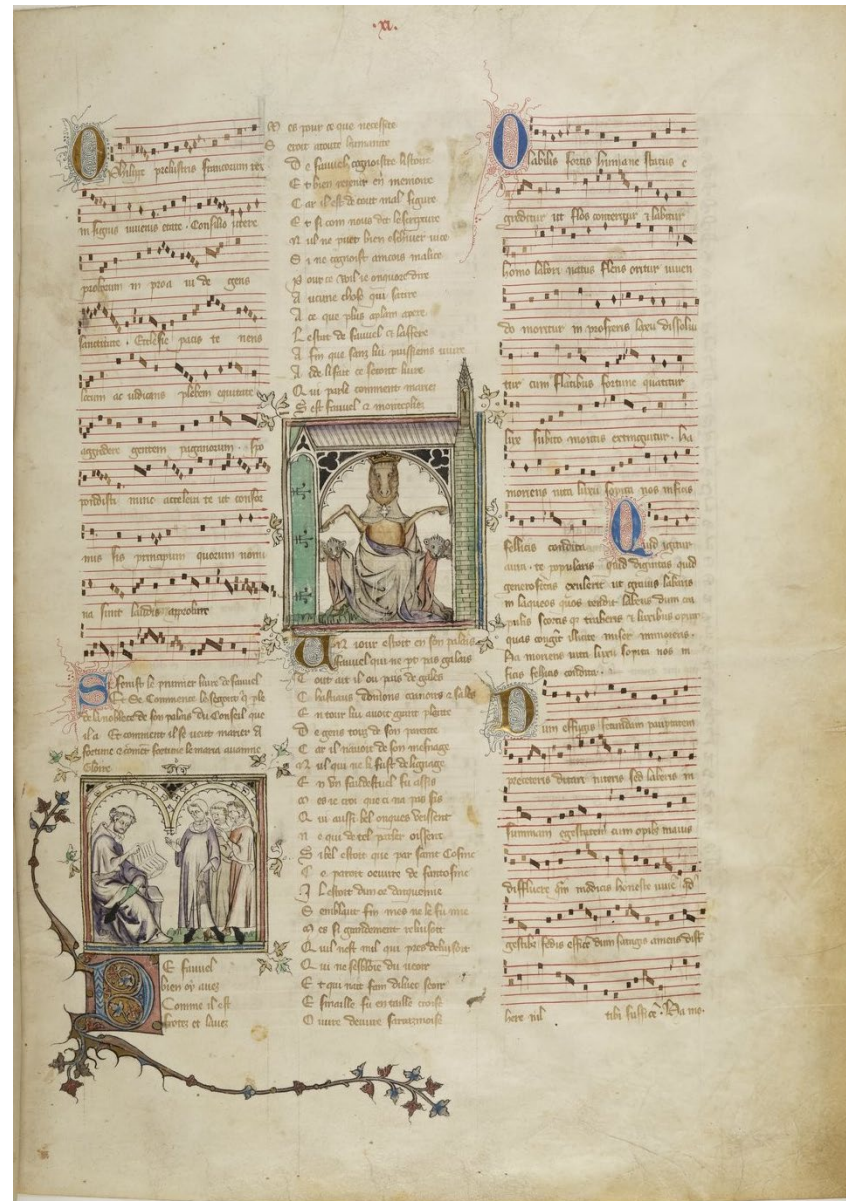 .xi.
O Philippe prelustris francorum rex
insignis iuvenis etate. Consilio utere
proborum in proa vi de gens
sanctitate. Ecclesie pacis te nens
locum ac iudicans plebem equitate
aggredere gentem paganorum.
nunc accelera te ut confor
mis sis principum quorum nomi
na sunt laudis approbate
Se fenist le premier livre de fauvel
Et se Commence le segont q ple
de la noblece de son palais du Conseil que
il a Et comment il se veut marier A
fortune & comment fortune le maria a vainne
Gloire
De fauvel
bien oy avez
Comme il est
et lavez
Mes pour ce que necessite
Seroit a toute humanite
De fauvel cognoistre lestoire
Et bien retenir en memoire
Car il est de tout mal figure
Et si com nous dit lescripture
Nul ne puet bien eschiver vice
Si ne cognoist aincois malice
Pour ce voil ie onquore dire
Aucune chose qui satire
A ce que plus a plain apere
Lestat de fauvel & laffere
A fin que sanz lui puissiens vivre
A ce lifait ce secont livre
Qui parle comment mariez
Sest fauvel & monteplie
Un iour estoit en son palais
Fauvel qui ne pt pas galais
Tout ait il ou pais de gales
Chastiaus donions manoirs & sales
Entour lui avoit grant plente
De gens touz de son parente
Car il navoit de son mesnage
Nul qui ne li fust de lignage
En un faudestuel fu assis
Mes ie croi que ci na pas sis
Qui aussi bel onques veissent
Ne qui de tel parler oissent
Si bel estoit que par saint Cosme
Ce paroit oeuvre de fantosme
Semblant fin mes ne le fu mie
Mes si grandement reluisoit
Quil nest nul qui pres de lui soit
Qui ne sesbloie du veoir
Esmaille fu en taille croise
Ouvre denvre sarazinoise
O labilis sortis humane status e
greditur ut flos conteritur & labitur
homo labori natus flens oritur viven
do moritur in prosperis luxu dissolvi
tur cum flatibus fortune quatitur
lux subito mortis extinguitur. ha
moriens vita luxu sopita nos inficis
fellitis condita. Quid igitur
aura te popularis quid dignitas quid
generositas extulerit ut gravius labaris
in laqueos quos tendit labens dum
quas congeris illicite miser immoriens.
Ha moriens vita luxu sopita nos in
ficis fellitis condita.
Dum effugis secundum paupertatem
preceteris ditari niteris sed laberis in
summam egestatem cum opibus maius
diffluere quam modicis honeste vivere
here nil tibi sufficere. Ha mo.